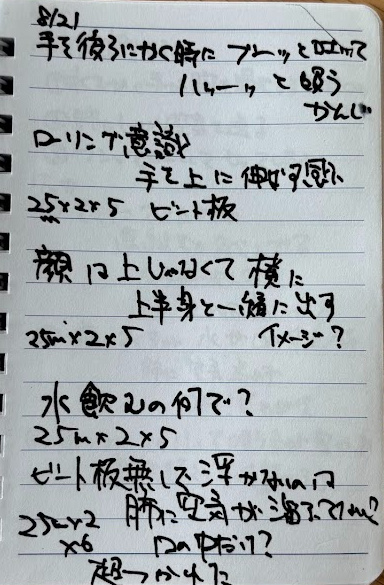 8/21
手を後ろにかく時に フーッと吐いて
ハーッと吸う
かんじ
ローリング意識
手を上に伸ばす感じ
25×2×5 ビート板
顔は上じゃなくて横に
上半身と一緒に出す
25m×2×5 イメージ?
水飲むの何で?
25m×2×5
ビート板無しで浮かないのは
肺に空気が溜ってない?
25m×2
×6 口の中だけ?
超つかれた